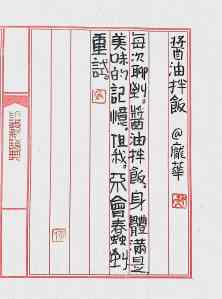 醬油拌飯 @龐華
每次聊到。醬油拌飯。身體滿是
美味的記憶。但我。不會蠢到
重試。